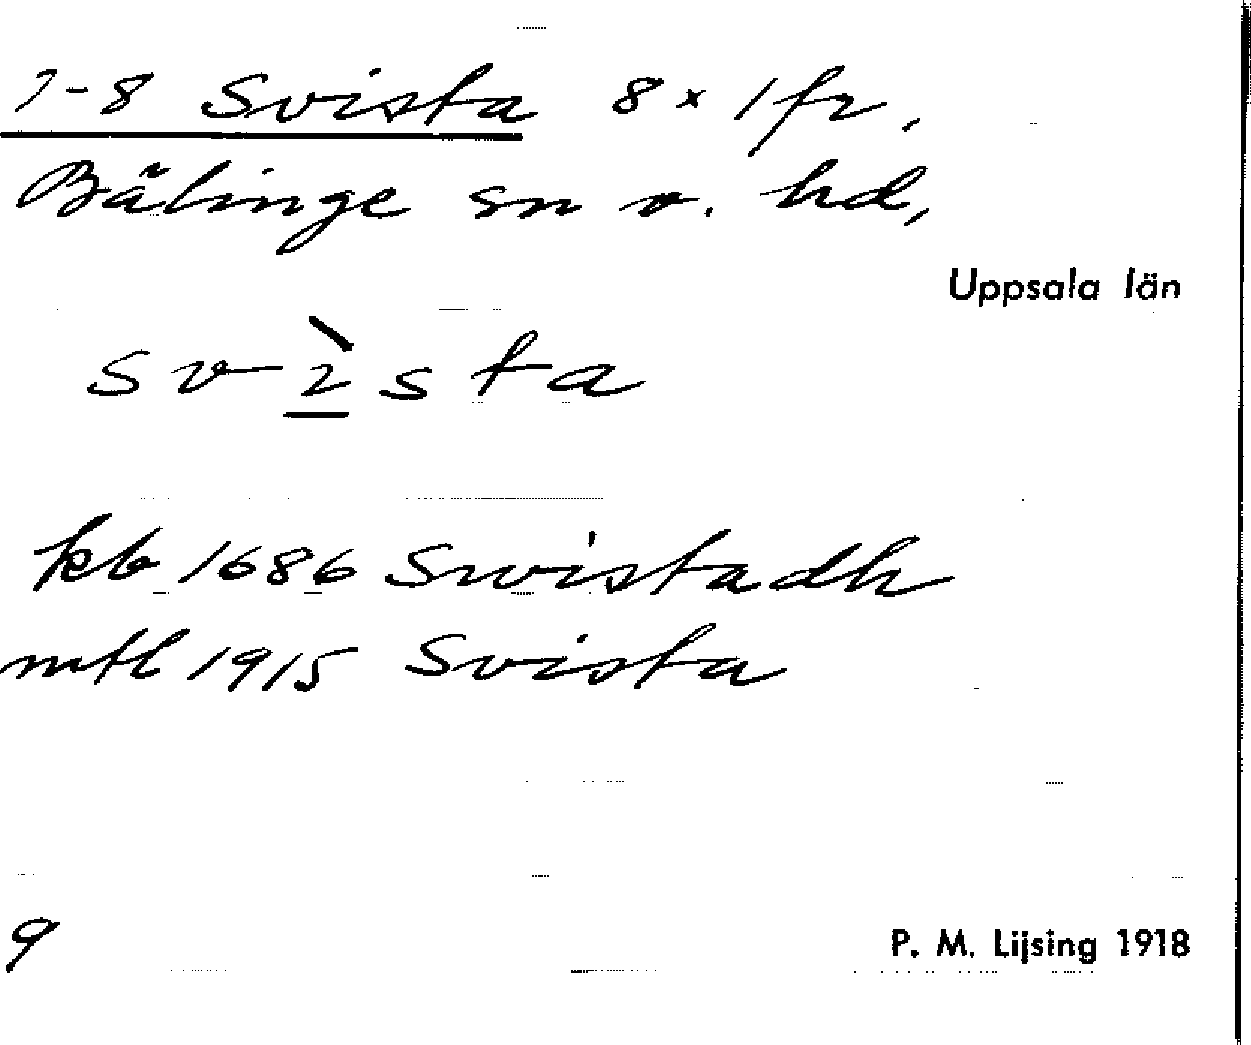 1-8 Svista 8 × 1 fr,
Bälinge sn o. hd,
Uppsala län
svìsta
kb 1686 Swistadh
mtl 1915 Svista
9
P. M. Lijsing 1918